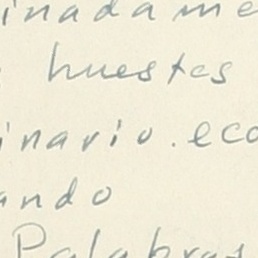 inadame
huestes
inario. eco
ando
Palabras